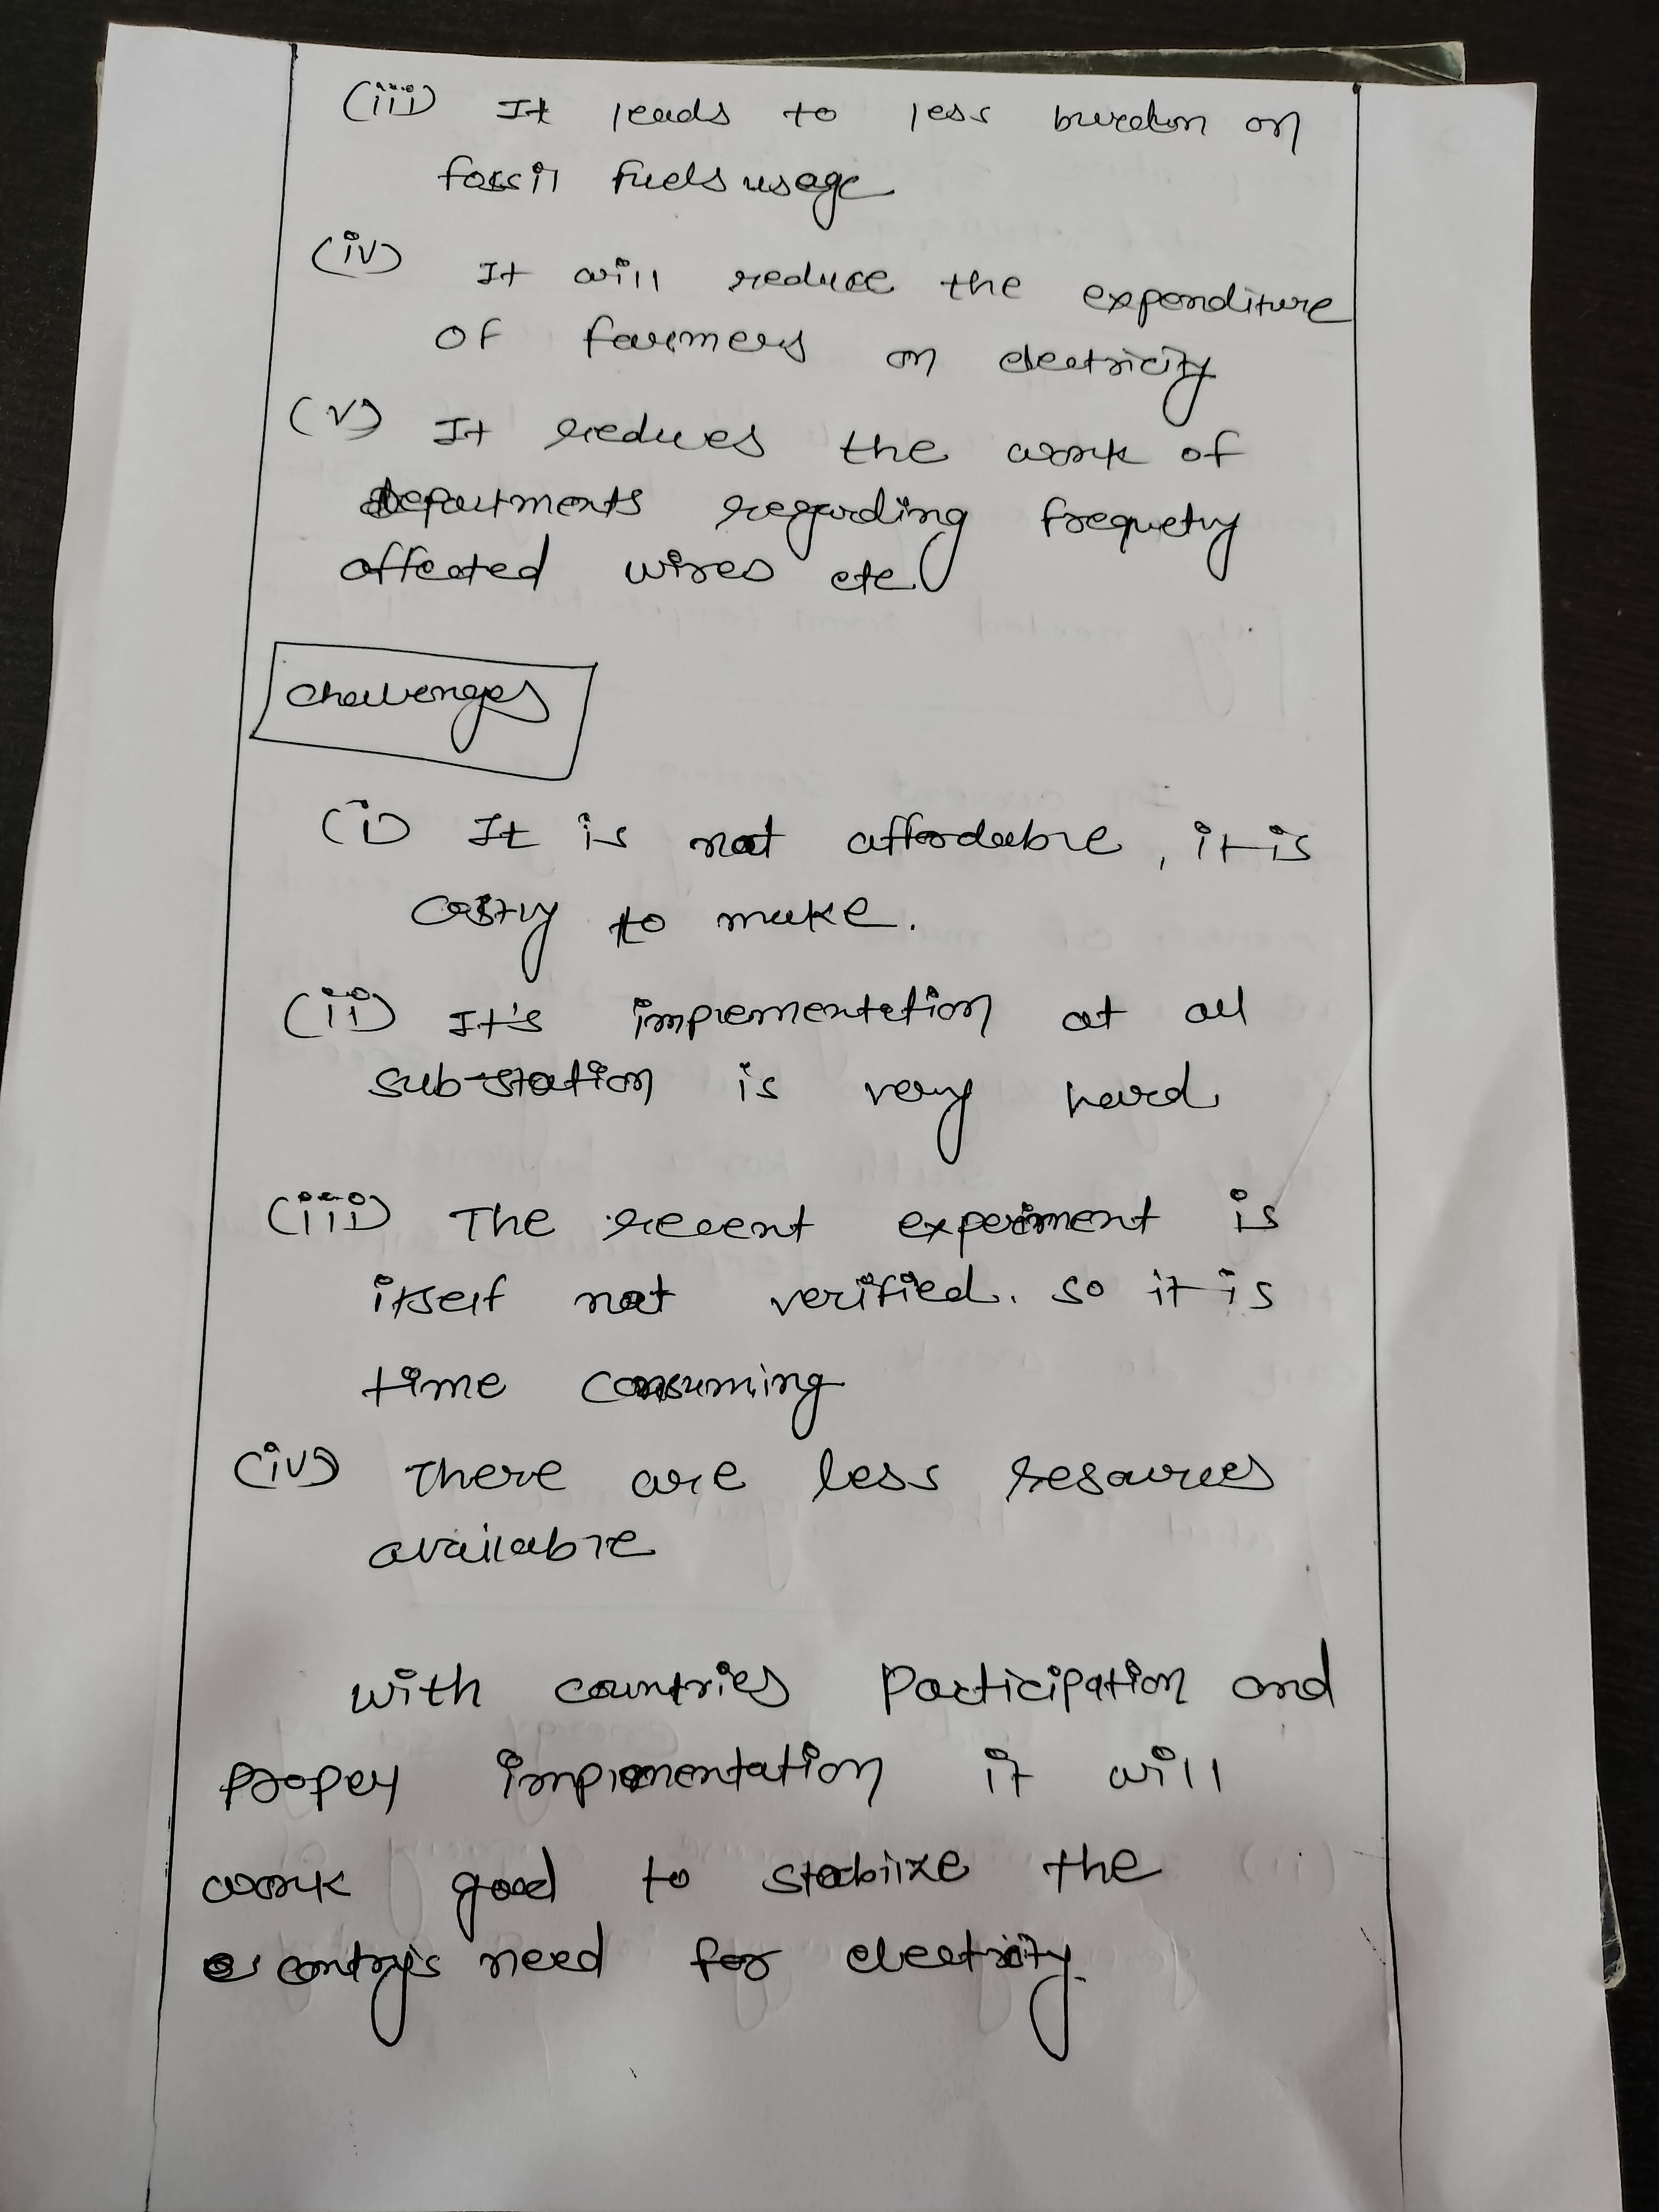 (iii) It leads to less burden on
fossil fuels usage
(iv) It will reduce the expenditure
of farmers on electricity
(v) It reduces the work of
departments regarding
affected wires etc
Challenges
(i) It is not affordable, it is
costly to make.
(ii) It's implementation at all
sub-station is very hard
(iii) The recent experiment is
itself not verified. so it is
time consuming
(iv) There are less resources
available
with countries participation and
proper implementation it will
work good to stabilize the
contry's need for electricity.